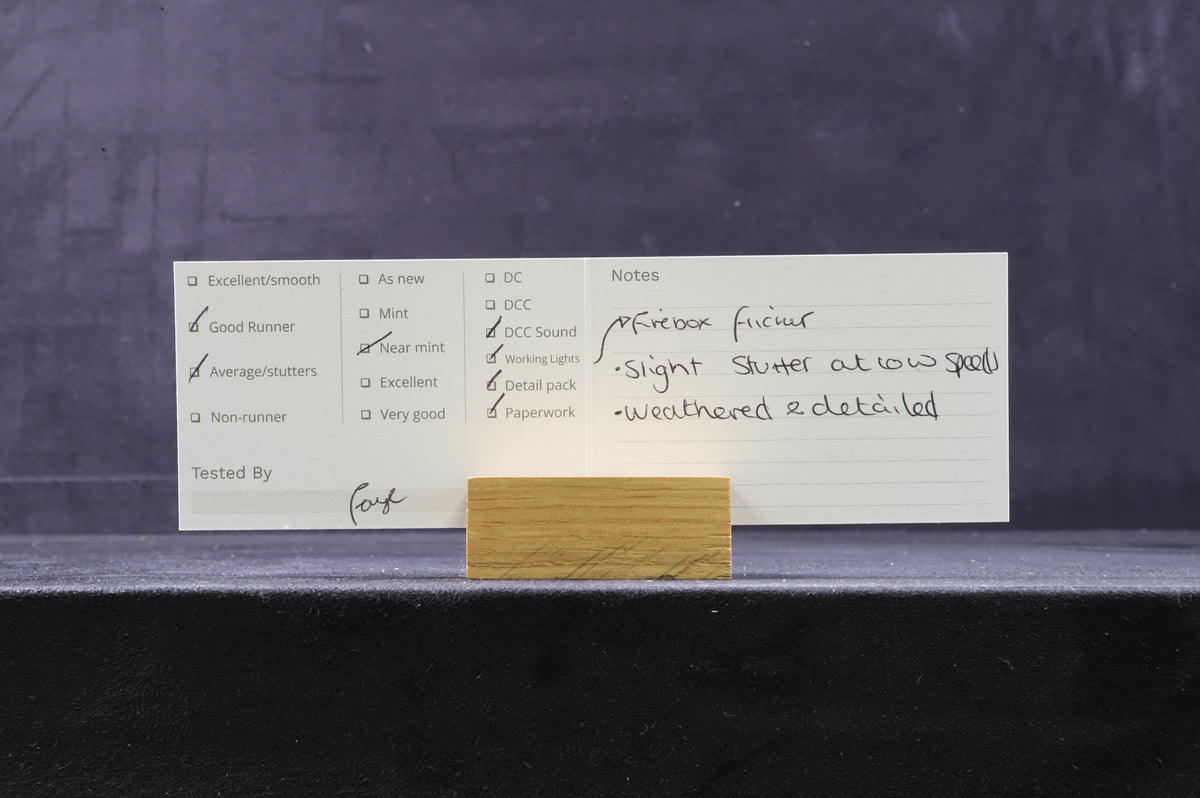 Excellent/smooth
Good Runner
Average/stutters
Non-runner
As new
Mint
Near mint
Excellent
Very good
DC
DCC
DCC Sound
Working Lights
Detail pack
Paperwork
Tested By
Faye
Notes
Firebox flicker
• Slight Stutter at low speeds
• Weathered & detailed